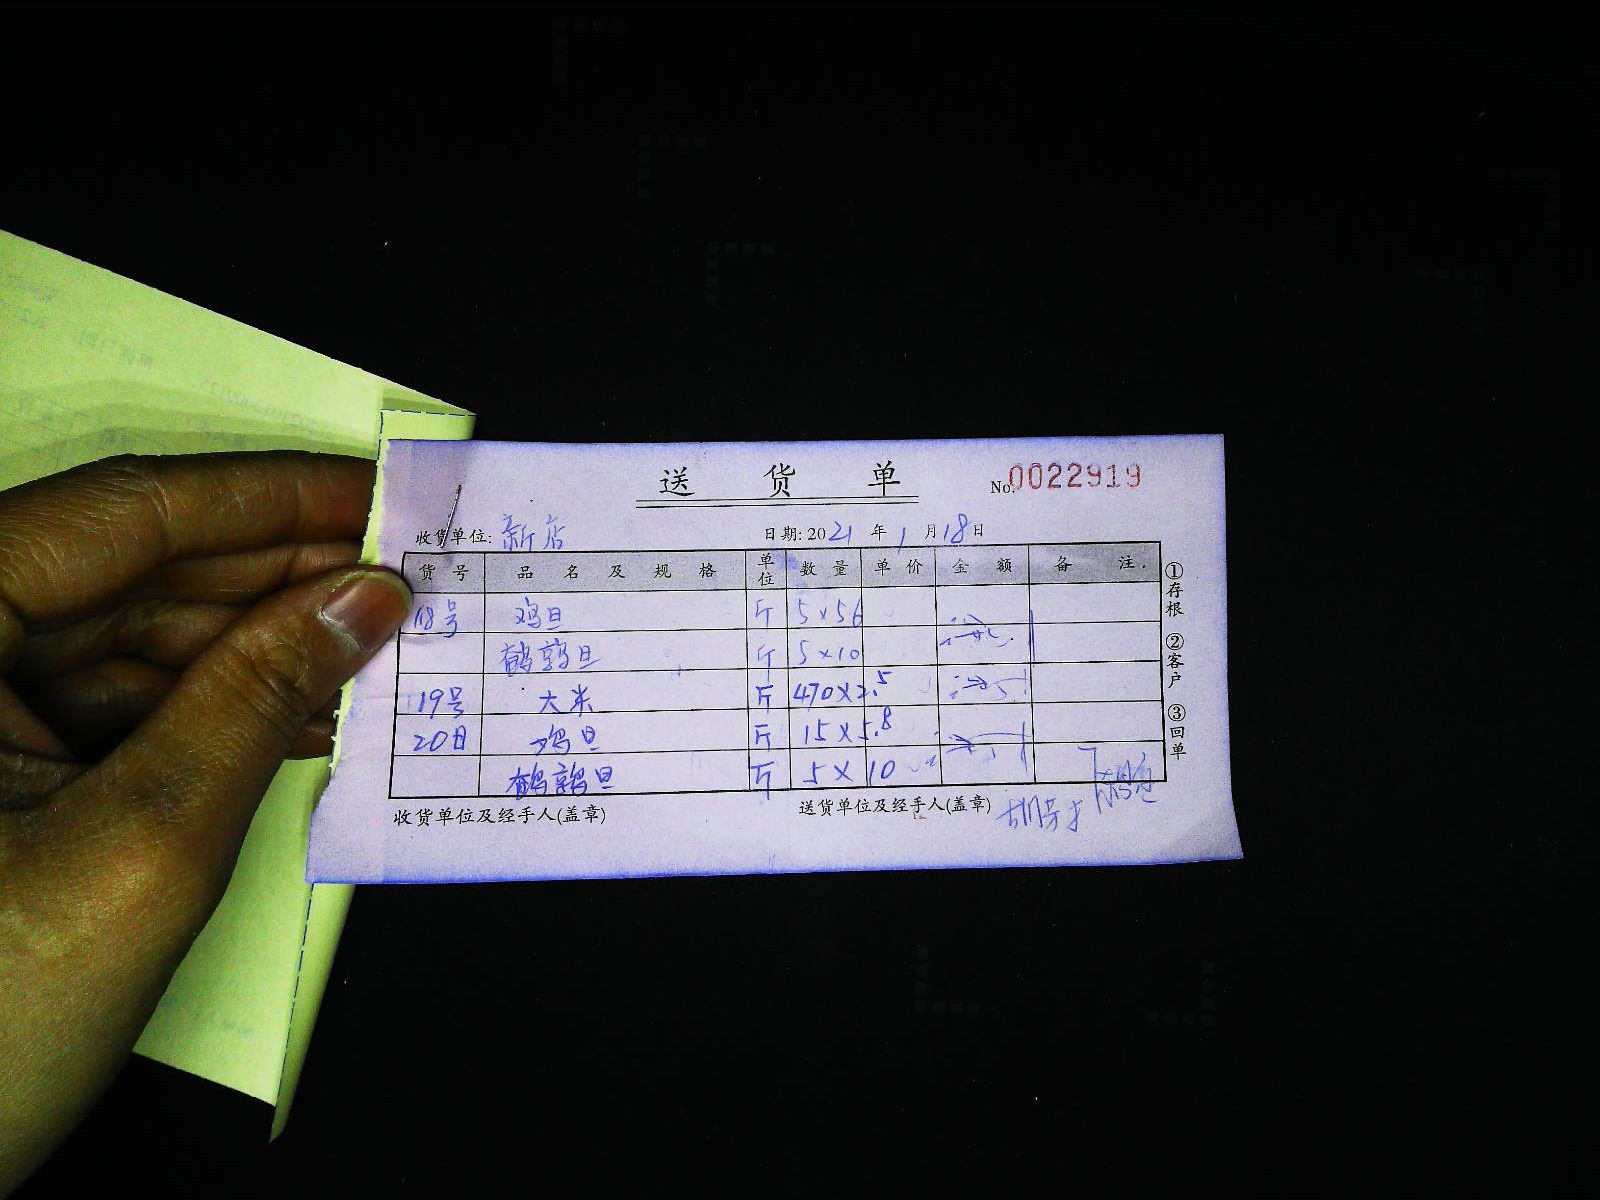 送 货 单
No.0022919
收货单位: 新店 日期: 2021 年 1 月 18 日
货号 品名及规格 单位 数量 单价 金额 备注
18号 鸡旦 斤 5×56
鹌鹑旦 斤 5×10
19号 大米 斤 470×2.5
20日 鸡旦 斤 15×5.8
鹌鹑旦 斤 5×10
收货单位及经手人(盖章) 送货单位及经手人(盖章)
①存根 ②客户 ③回单